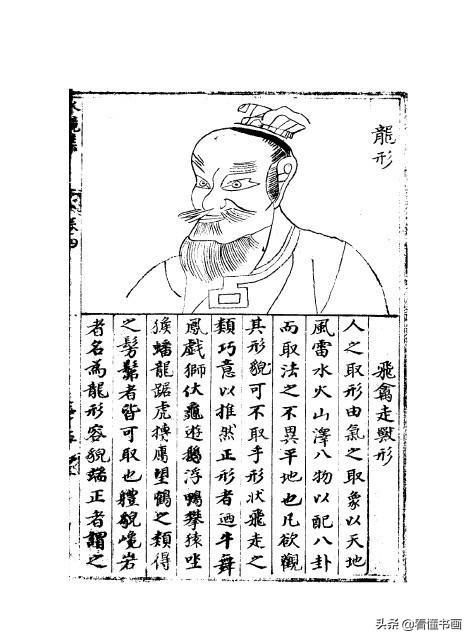 龍形
飛禽走獸形
人之取形由氣之取象以天地
風雷水火山澤八物以配八卦
而取法之不異平地也凡欲觀
其形貌可不取乎形狀飛走之
類巧意以推然正形者迺牛舞
鳳戲獅伏龜遊鵝浮鴨攀猿坐
猴蟠龍踞虎摶鷹望鶴之類得
之髣髴者皆可取也軆貌巉岩
者名為龍形容貌端正者謂之
卷四
头条 @看懂书画